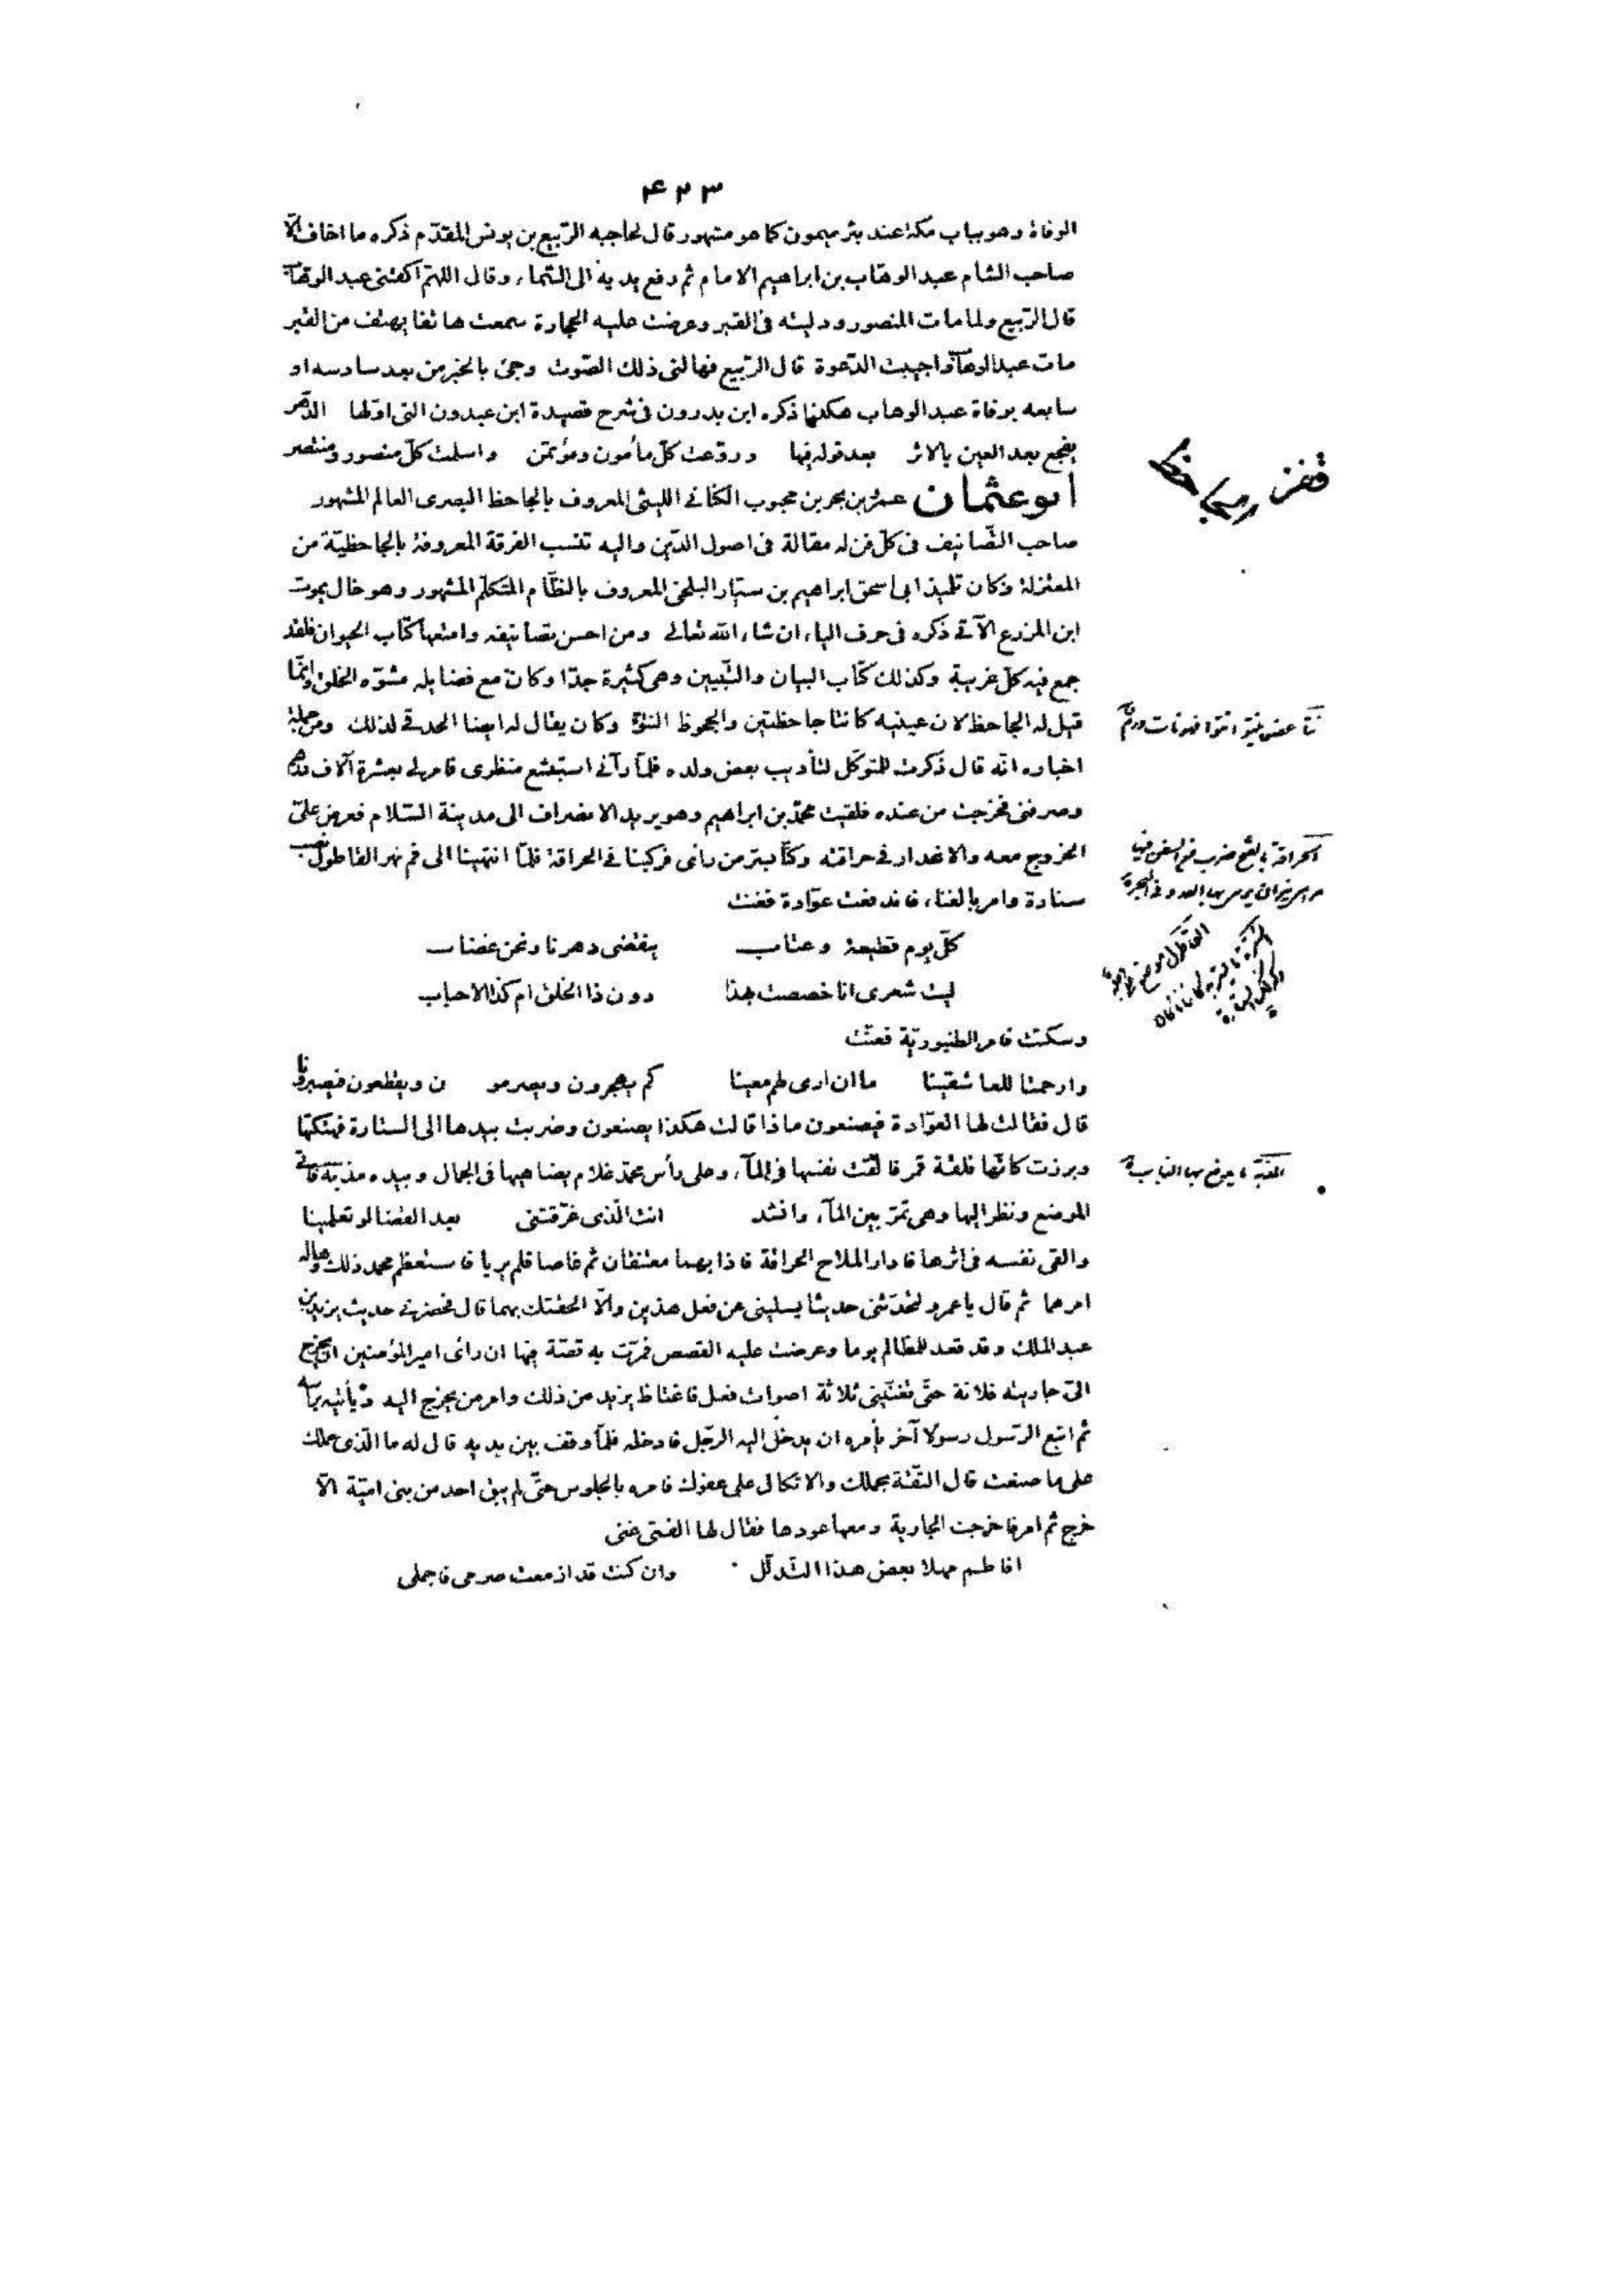 ۴۲۳
الوفاة وهو بباب مكة عند بئر ميمون كما هو مشهور قال لحاجبه الربيع بن يونس المقدّم ذكره ما اخاف الّا
صاحب الشأم عبد الوهّاب بن ابراهيم الامام ثم رفع يديه الى السّماء وقال اللهمّ اكفنى عبد الوهّاب
قال الرّبيع ولما مات المنصور ودليته فى القبر وعرضت عليه الحجارة سمعت هاتفا يهتف من القبر
مات عبد الوهّاب واجيبت الدّعوة قال الرّبيع فهالنى ذلك الصّوت وجئ بالخبر من بعد سادسه او
سابعه بوفاة عبد الوهاب هكذا ذكره ابن بدرون فى شرح قصيدة ابن عبدون التى اوّلها الدّهر
يفجع بعد العين بالاثر بعد قوله فيها وروّعت كلّ مأمون ومؤتمن واسلمت كلّ منصور ومنتصر
ابو عثمان عمرو بن بحر بن محبوب الكنانى الليثى المعروف بالجاحظ البصرى العالم المشهور
صاحب التّصانيف فى كلّ فن له مقالة فى اصول الدّين واليه تنسب الفرقة المعروفة بالجاحظيّة من
المعتزلة وكان تلميذ ابى اسحق ابراهيم بن سيّار البلخى المعروف بالنظّام المتكلّم المشهور وهو خال يموت
ابن المزرع الآتى ذكره فى حرف الياء ان شاء الله تعالى ومن احسن تصانيفه وامتعها كتاب الحيوان فلقد
جمع فيه كلّ غريبة وكذلك كتاب البيان والتّبيين وهى كثيرة جدّا وكان مع فضايله مشوّه الخلق وانّما
قيل له الجاحظ لان عينيه كانتا جاحظتين والجحوظ النتوّ وكان يقال له ايضا الحدقى لذلك ومن جملة
اخباره انّه قال ذكرت للمتوكّل لتأديب بعض ولده فلمّا رآنى استبشع منظرى فامر لى بعشرة آلاف درهم
وصرفنى فخرجت من عنده فلقيت محمّد بن ابراهيم وهو يريد الانصراف الى مدينة السّلام فعرض علىّ
الخروج معه والانحدار فى حراقته وكنّا بسرّ من رأى فركبنا فى الحراقة فلمّا انتهينا الى فم نهر القاطول نصب
ستارة وامر بالغناء فاندفعت عوّادة فغنت
كلّ يوم قطيعة وعتاب ينقضى دهرنا ونحن غضاب
ليت شعرى انا خصصت بهذا دون ذا الخلق ام كذا الاحباب
وسكتت فامر الطنبوريّة فغنّت
وارحمتا للعاشقينا ما ان ارى لهم معينا كم يهجرون ويصرمو ن ويقطعون فيصبرونا
قال فقالت لها العوّادة فيصنعون ماذا قالت هكذا يصنعون وضربت بيدها الى الستارة فهتكتها
وبرزت كانّها فلقة قمر فالقت نفسها فى المآء وعلى رأس محمّد غلام يضاهيها فى الجمال وبيده مذبّة فاتى
الموضع ونظر اليها وهى تمرّ بين المآء وانشد انت الّذى غرّقتنى بعد القضا لو تعلمينا
والقى نفسه فى اثرها فادار الملاح الحراقة فاذا بهما معتنقان ثم غاصا فلم يريا فاستعظم محمد ذلك وهاله
امرهما ثم قال يا عمرو لتحدّثنى حديثا يسلينى عن فعل هذين والّا الحقتك بهما قال فحضرنى حديث يزيد بن
عبد الملك وقد قعد للمظالم يوما وعرضت عليه القصص فمرّت به قصّة فيها ان رأى امير المؤمنين ان يخرج
الىّ جاريته فلانة حتّى تغنّينى ثلاثة اصوات فعل فاغتاظ يزيد من ذلك وامر من يخرج اليه ويأتيه برأسه
ثم اتبع الرّسول رسولا آخر يأمره ان يدخل اليه الرّجل فادخله فلمّا وقف بين يديه قال له ما الّذى حملك
على ما صنعت قال الثّقة بحلمك والاتكال على عفوك فامره بالجلوس حتّى لم يبق احد من بنى اميّة الّا
خرج ثم امر فاخرجت الجارية ومعها عودها فقال لها الفتى غنى
افاطم مهلا بعض هذا التّدلّل وان كنت قد ازمعت صرمى فاجملى
الحراقة بالفتح ضرب من السفن فيها
مرامى نيران يرمى بها العدو فى البحر